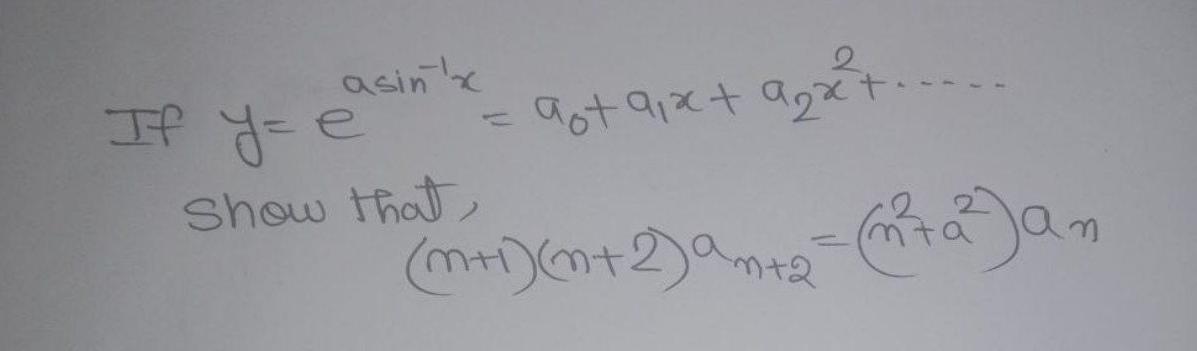 If y = e^{a sin⁻¹x} = a₀ + a₁x + a₂x² + ......
show that,
(n+1)(n+2)aₙ₊₂ = (n² + a²)aₙ